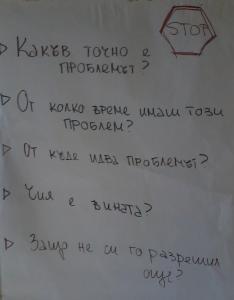 STOP
Какъв точно е
проблемът?
От колко време имаш този
проблем?
От къде идва проблемът?
Чия е вината?
Защо не си го разрешил
още?